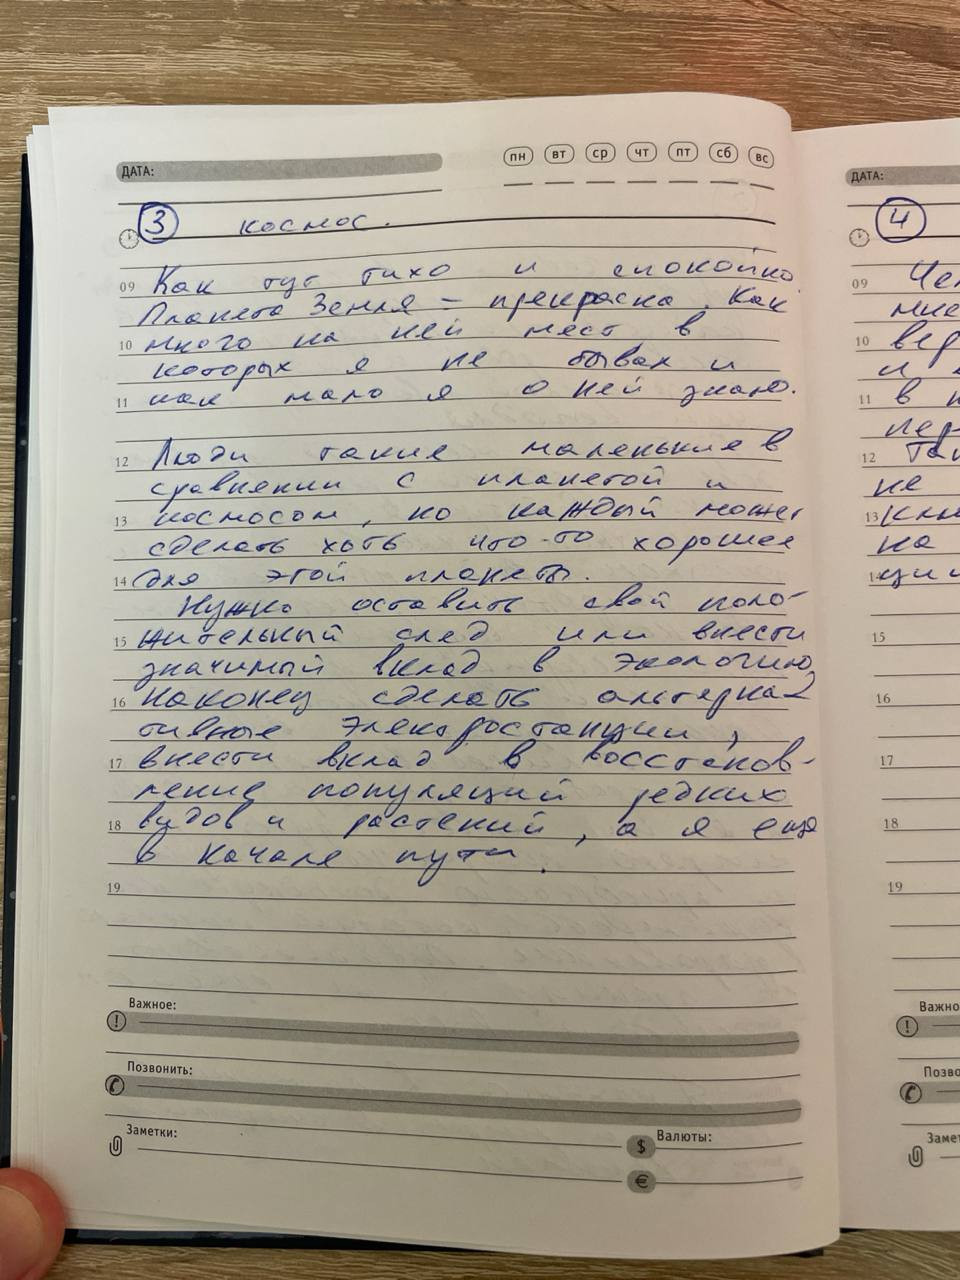 ДАТА: пн вт ср чт пт сб вс
3 космос.
09 Как тут тихо и спокойно.
Планета Земля – прекрасна. Как
10 много на ней мест в
которых я не бывал и
11 как мало я о ней знаю.
12 Люди такие маленькие в
сравнении с планетой и
13 космосом, но каждый может
сделать хоть что-то хорошее
14 для этой планеты.
Нужно оставить свой поло-
15 жительный след или внести
значимый вклад в экологию,
16 наконец сделать альтерна-
тивные электростанции,
17 внести вклад в восстанов-
ление популяций редких
18 видов и растений, а я еще
в начале пути.
19
Важное:
Позвонить:
Заметки: $ Валюты:
€
ДАТА:
4
09
10
11 в
12
не
13
на
14
15
16
17
18
19